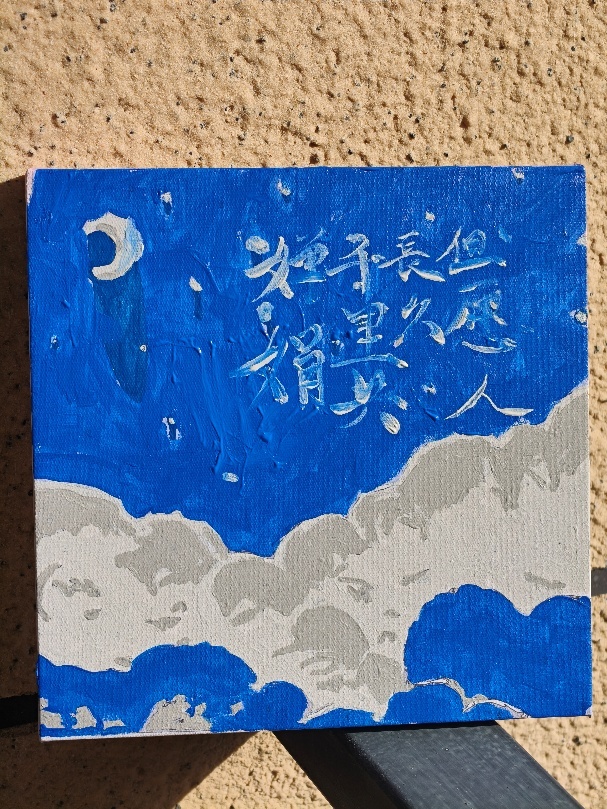 但愿人
長久
千里共
婵娟